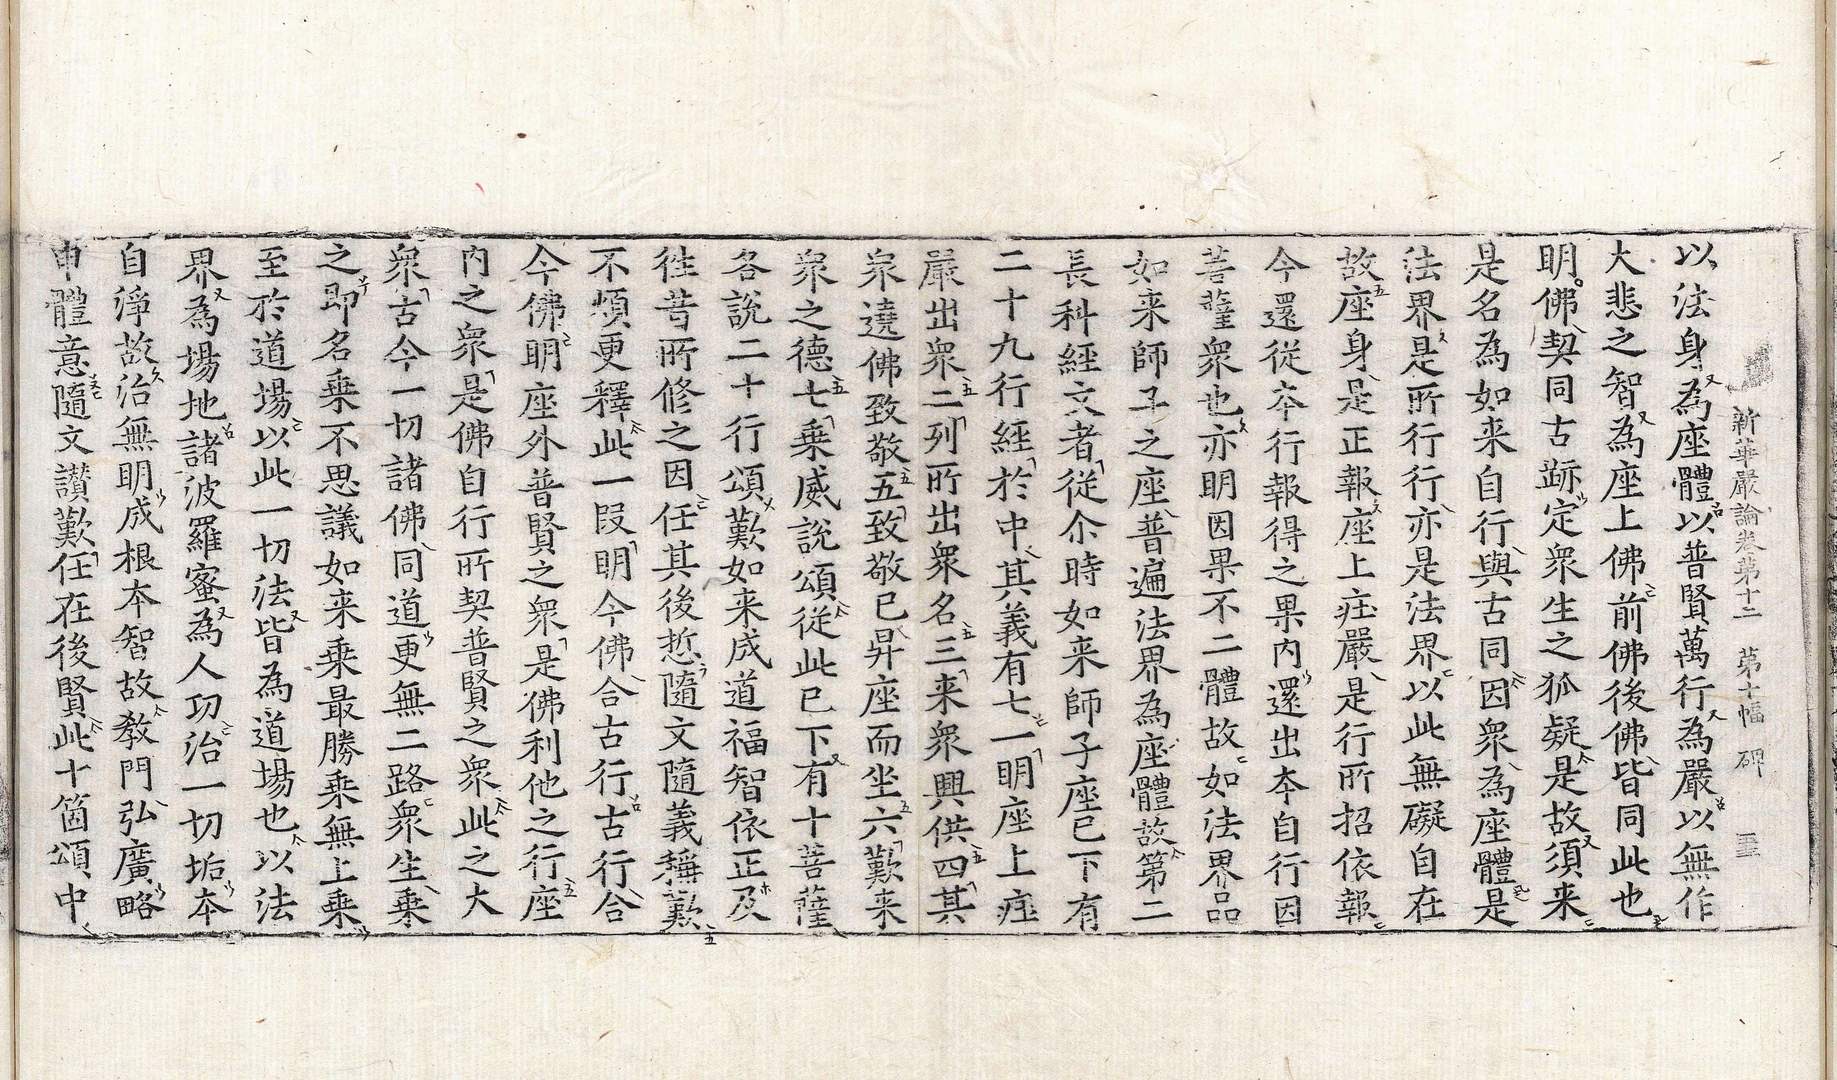 新華嚴論卷第十二 第十幅 碑
以法身為座體以普賢萬行為嚴以無作
大悲之智為座上佛前佛後佛皆同此也
明佛契同古跡定衆生之狐疑是故須来
是名為如来自行與古同因衆為座體是
法界是所行行亦是法界以此無礙自在
故座身是正報座上庄嚴是行所招依報
今還従夲行報得之果内還出夲自行因
菩薩衆也亦明因果不二體故如法界品
如来師子之座普遍法界為座體故第二
長科経文者従尒時如来師子座已下有
二十九行經於中其義有七一明座上庄
嚴出衆二列所出衆名三来衆興供四其
衆遶佛致敬五致敬已昇座而坐六歎来
衆之德七乗威說頌従此已下有十菩薩
各說二十行頌歎如来成道福智依正及
徃昔所修之因任其後悊隨文隨義稱歎
不煩更釋此一段明今佛合古行古行合
今佛明座外普賢之衆是佛利他之行座
内之衆是佛自行所契普賢之衆此之大
衆古今一切諸佛同道更無二路衆生乗
之即名乗不思議如来乗最勝乗無上乗
至於道場以此一切法皆為道場也以法
界為場地諸波羅蜜為人功治一切垢夲
自淨故治無明成根夲智故教門弘廣略
申體意隨文讃歎任在後賢此十箇頌中